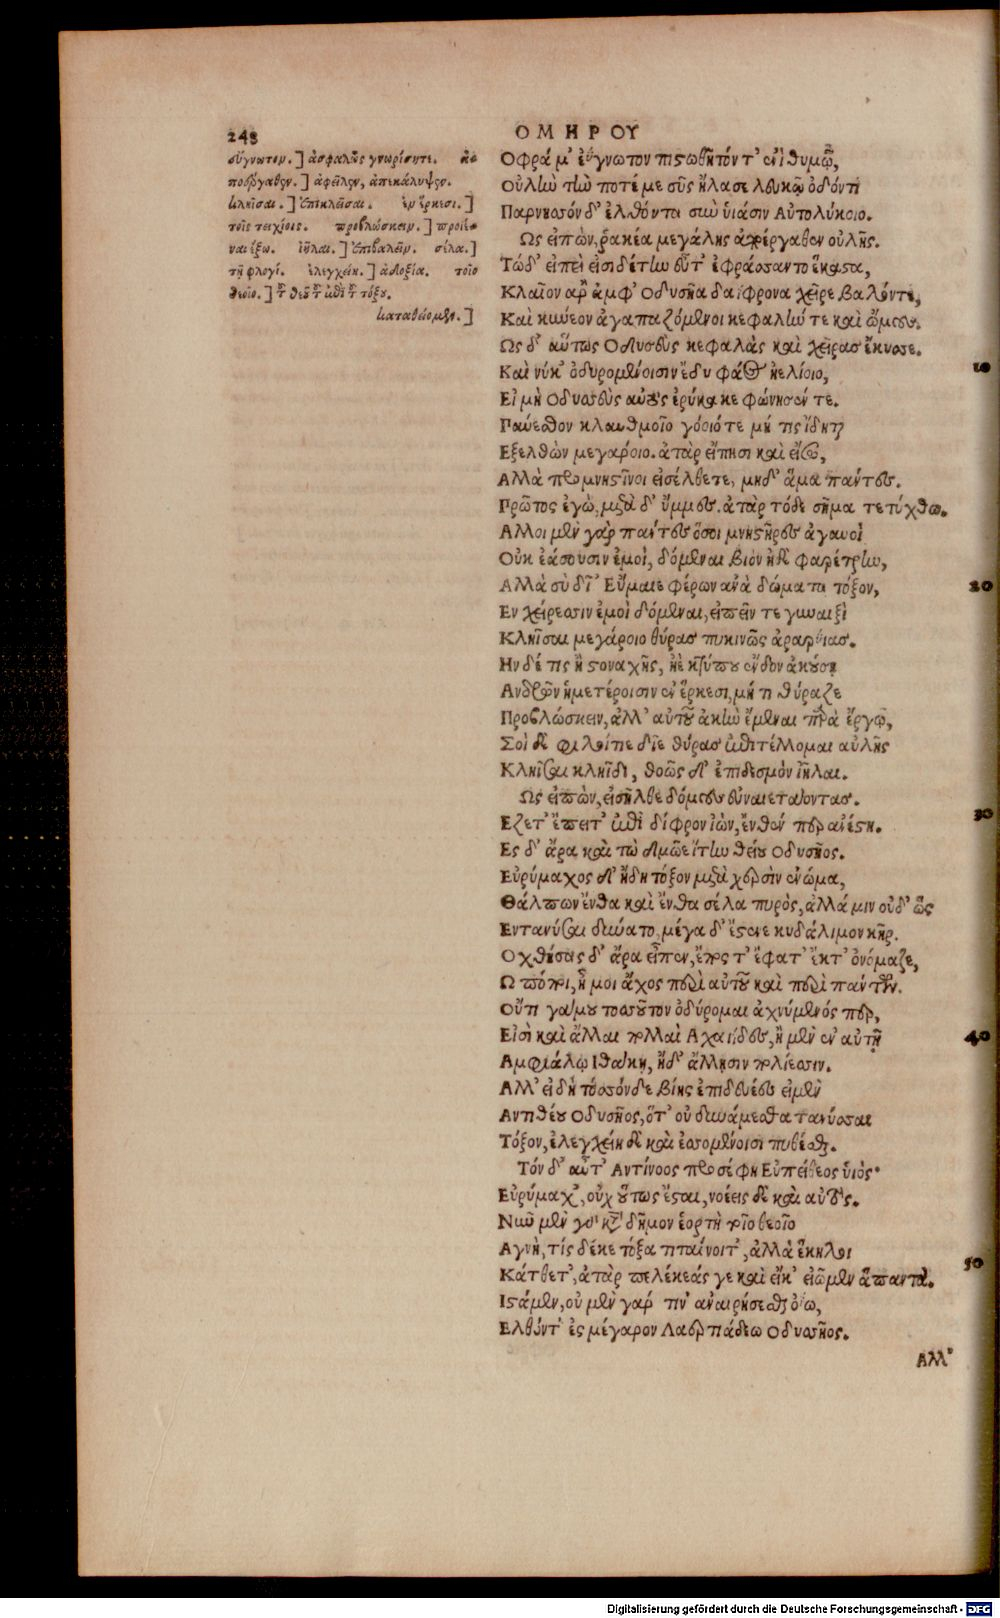 248
ΟΜΗΡΟΥ
εὔγνωτον.] ἀσφαλῶς γνωρίσητε. ἀ
ποέργαθεν.] ἀφεῖλεν, ἀπεκάλυψεν.
κληῖσαι.] ἐπικλεῖσαι. ἐν ἕρκεσι.]
τοῖς τειχίοις. προβλώσκειν.] προϊέ
ναι ἔξω. ἰῆλαι.] ἐπιβαλεῖν. σέλα.]
τῇ φλογί. ἐλεγχείη.] ἀδοξία. τοῖο
θεοῖο.] τοῦ θεοῦ τοῦ ἐπὶ τοῦ τόξου.
καταθώομεν.]
Οφρά μ' ἐΰγνωτον πιστωθῆτόν τ' ἐνὶ θυμῷ,
Οὐλὴν τὴν ποτέ με σῦς ἤλασε λευκῷ ὀδόντι
Παρνησόνδ' ἐλθόντα σὺν υἱάσιν Αὐτολύκοιο.
Ως εἰπὼν, ῥακέα μεγάλης ἀποέργαθεν οὐλῆς.
Τὼ δ' ἐπεὶ εἰσιδέτην εὖ τ' ἐφράσσαντο ἕκαστα,
Κλαῖον ἄρ' ἀμφ' Οδυσῆα δαΐφρονα χεῖρε βαλόντε,
Καὶ κύνεον ἀγαπαζόμενοι κεφαλήν τε καὶ ὤμους.
Ως δ' αὔτως Οδυσεὺς κεφαλὰς καὶ χεῖρας ἔκυσσε.
Καὶ νύ κ' ὀδυρομένοισιν ἔδυ φάος ἠελίοιο, 10
Εἰ μὴ Οδυσσεὺς αὐτὸς ἐρύκακε φώνησέν τε.
Παύεσθον κλαυθμοῖο γόοιό τε μή τις ἴδηται
Εξελθὼν μεγάροιο. ἀτὰρ εἴπῃσι καὶ εἴσω,
Αλλὰ προμνηστῖνοι εἰσέλθετε, μηδ' ἅμα πάντες.
Πρῶτος ἐγὼ, μετὰ δ' ὔμμες. ἀτὰρ τόδε σῆμα τετύχθω.
Αλλοι μὲν γὰρ πάντες ὅσοι μνηστῆρες ἀγαυοὶ
Οὐκ ἐάσουσιν ἐμοὶ, δόμεναι βιὸν ἠδὲ φαρέτρην,
Αλλὰ σὺ δῖ' Εὔμαιε φέρων ἀνὰ δώματα τόξον, 20
Εν χείρεσσιν ἐμοὶ δόμεναι, εἰπεῖν τε γυναιξὶ
Κληῖσαι μεγάροιο θύρας πυκινῶς ἀραρυίας.
Ην δέ τις ἢ στοναχῆς, ἠὲ κτύπου ἔνδον ἀκούσῃ
Ανδρῶν ἡμετέροισιν ἐν ἕρκεσι, μή τι θύραζε
Προβλώσκειν, ἀλλ' αὐτοῦ ἀκὴν ἔμεναι παρὰ ἔργῳ,
Σοὶ δὲ φιλοίτιε δῖε θύρας ἐπιτέλλομαι αὐλῆς
Κληῖσαι κληῖδι, θοῶς δ' ἐπιδεσμὸν ἰῆλαι.
Ως εἰπὼν, εἰσῆλθε δόμους εὐναιετάοντας.
Εζετ' ἔπειτ' ἐπὶ δίφρον ἰὼν, ἔνθεν περ ἀνέστη. 30
Ες δ' ἄρα καὶ τὼ δμῶε ἴτην θείου Οδυσῆος.
Εὐρύμαχος δ' ἤδη τόξον μετὰ χερσὶν ἐνώμα,
Θάλπων ἔνθα καὶ ἔνθα σέλα πυρὸς, ἀλλά μιν οὐδ' ὣς
Εντανύσαι δύνατο, μέγα δ' ἔστενε κυδάλιμον κῆρ.
Οχθήσας δ' ἄρα εἶπεν, ἔπος τ' ἔφατ' ἔκ τ' ὀνόμαζε,
Ω πόποι, ἦ μοι ἄχος περὶ αὐτοῦ καὶ περὶ πάντων.
Οὔτι γάμου τοσοῦτον ὀδύρομαι ἀχνύμενός περ,
Εἰσὶ καὶ ἄλλαι πολλαὶ Αχαιΐδες, ἢ μὲν ἐν αὐτῇ 40
Αμφιάλῳ Ιθάκῃ, ἠδ' ἄλλῃσιν πολίεσσιν.
Αλλ' εἰ δὴ τόσσόνδε βίης ἐπιδευέες εἰμὲν
Αντιθέου Οδυσῆος, ὅτ' οὐ δυνάμεσθα τανύσσαι
Τόξον, ἐλεγχείη δὲ καὶ ἐσσομένοισι πυθέσθαι.
Τὸν δ' αὖτ' Αντίνοος προσέφη Εὐπείθεος υἱός·
Εὐρύμαχ', οὐχ οὕτως ἔσται, νοέεις δὲ καὶ αὐτός.
Νῦν μὲν γὰρ κατὰ δῆμον ἑορτὴ τοῖο θεοῖο
Αγνὴ, τίς δέ κε τόξα τιταίνοιτ', ἀλλὰ ἕκηλοι
Κάτθετ', ἀτὰρ πελέκεάς γε καὶ εἴκ' εἰῶμεν ἅπαντας. 50
Ιστάμεν, οὐ μὲν γάρ τιν' ἀναιρήσεσθαι ὀΐω,
Ελθόντ' ἐς μέγαρον Λαερτιάδεω Οδυσσῆος.
Αλλ'
Digitalisierung gefördert durch die Deutsche Forschungsgemeinschaft - DFG